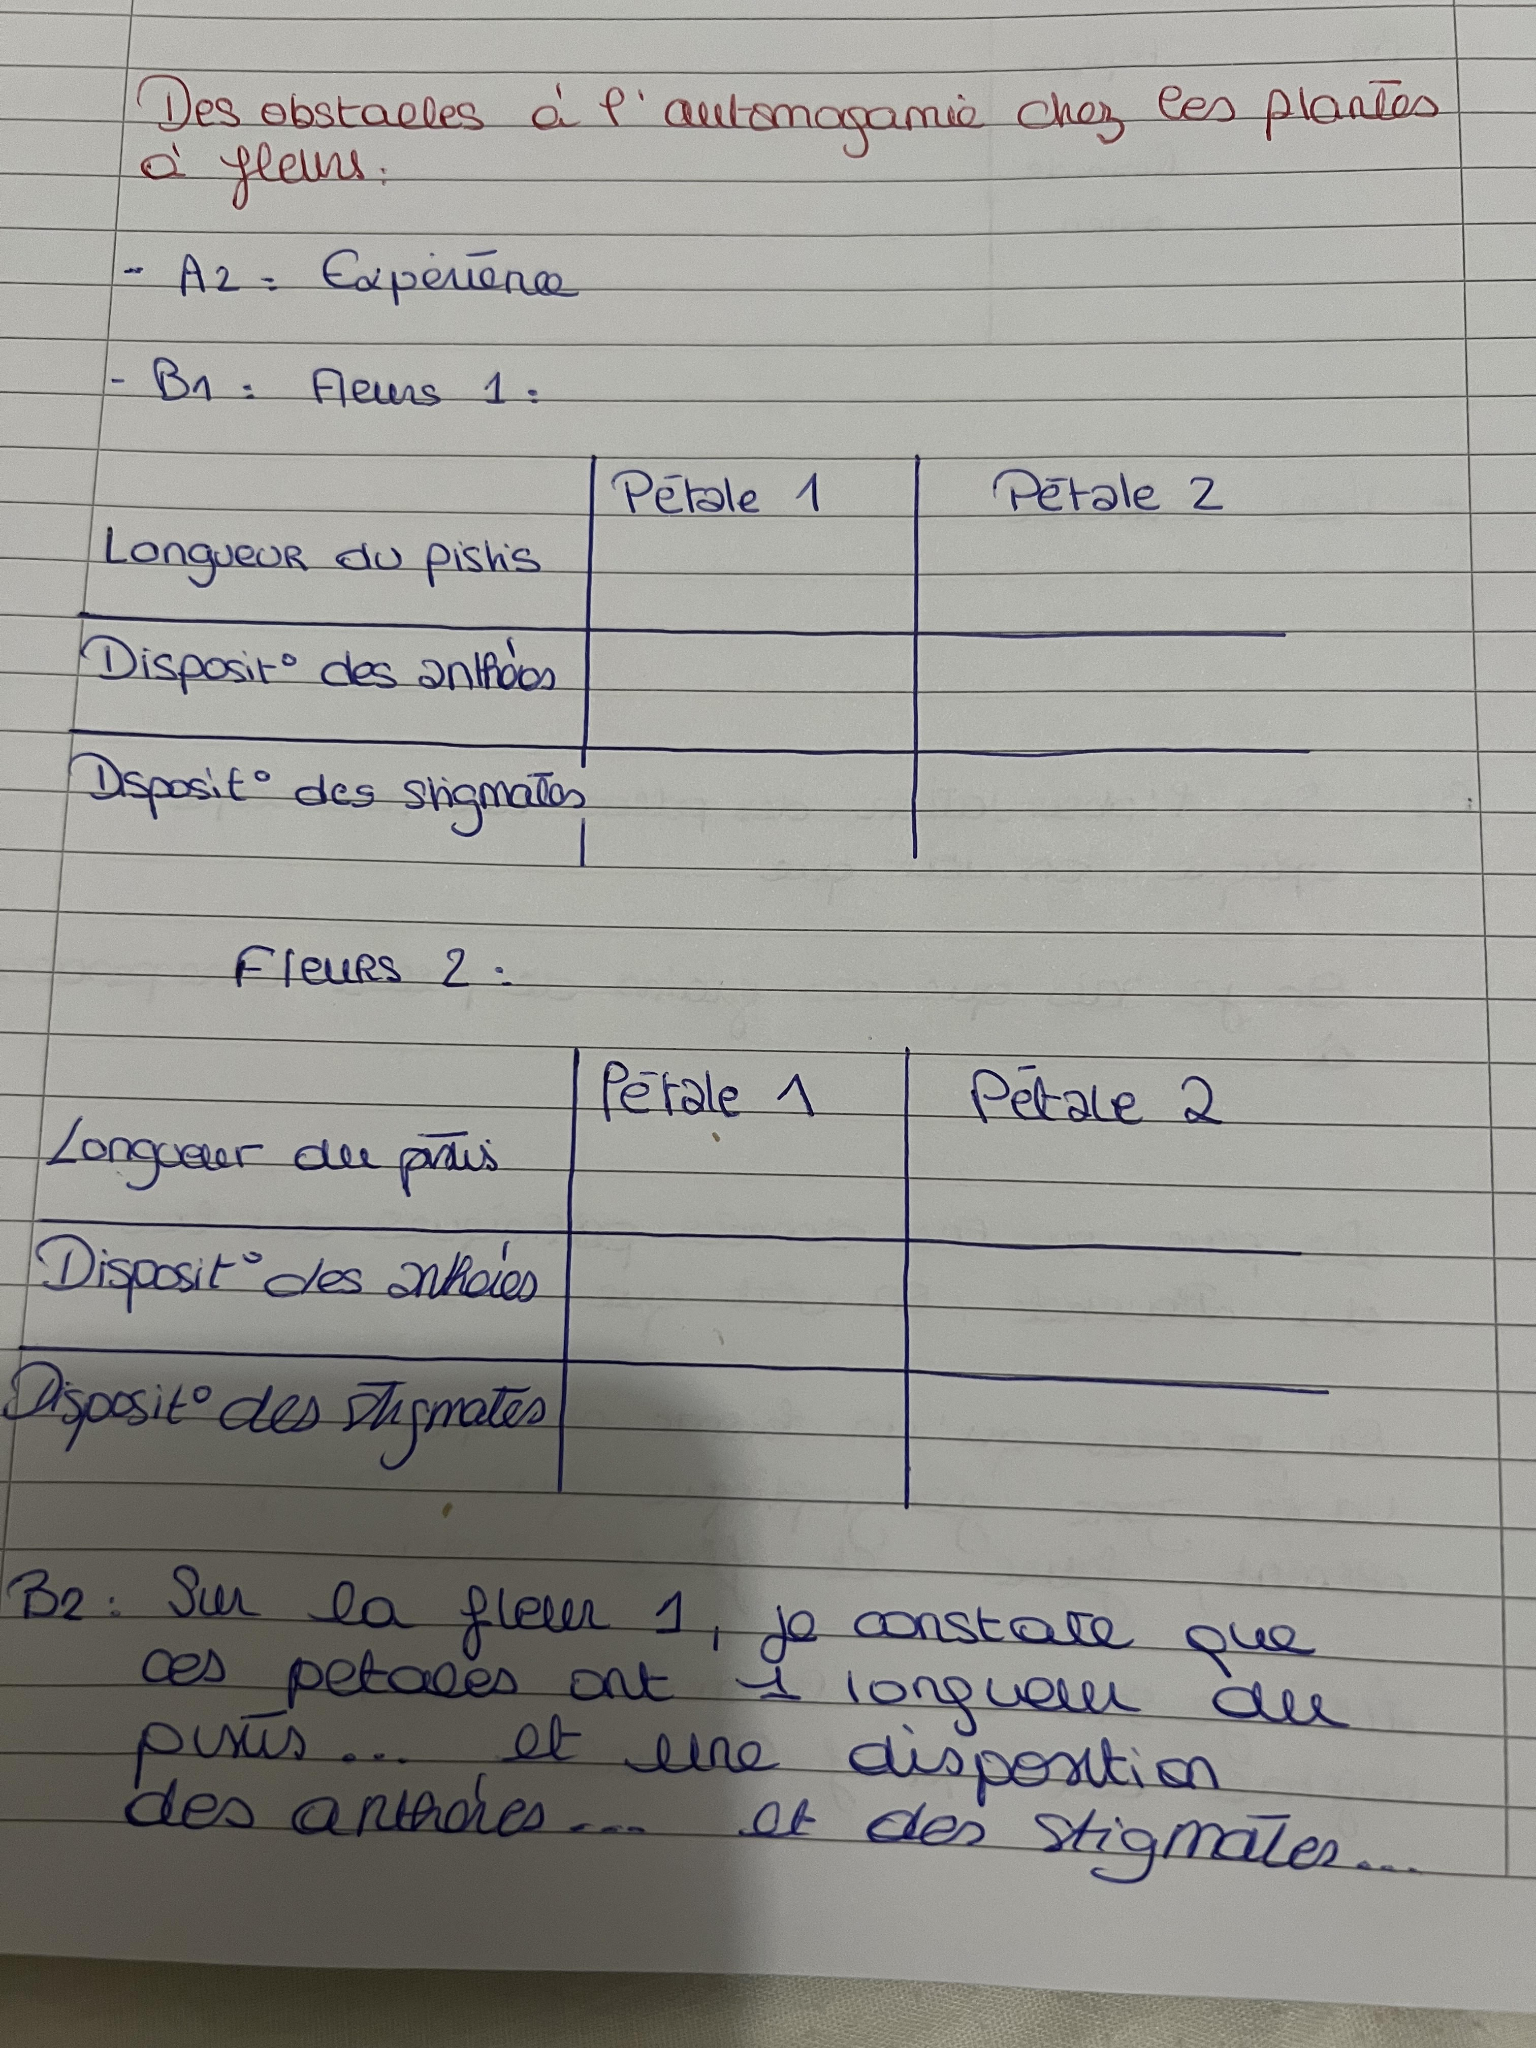 Des obstacles à l'automogamie chez les plantes
à fleurs.
- A2 : Expérience
- B1 : Fleurs 1 :
Pétale 1 Pétale 2
Longueur du pistis
Disposit° des
Disposit° des stigmates
Fleurs 2 :
Pétale 1 Pétale 2
Longueur du pistis
Disposit° des
Disposit° des stigmates
B2 : Sur la fleur 1, je constate que
ces petales ont 1 longueur du
pistis ... et une disposition
des ... et des stigmates ...